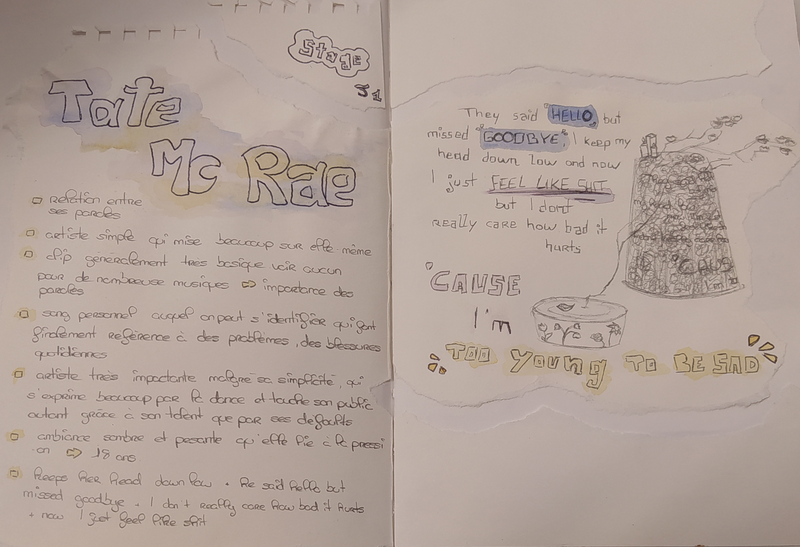 Stage
Tate
Mc Rae
relation entre
ses paroles
artiste simple qui mise beaucoup sur elle même
clip généralement très basique voir aucun
pour de nombreuse musiques ⇨ importance des
paroles
song personnel auquel on peut s'identifier qui font
finalement reférence à des problèmes, des blessures
quotidiennes
artiste très impactante malgré sa simplicité, qui
s'exprime beaucoup par la dance et touche son public
autant grâce à son talent que par ses defauts
ambiance sombre et pesante qu'elle lie à la pressi
-on ⇨ 18 ans
keeps her head down low + he said hello but
missed goodbye + I don't really care how bad it hurts
+ now I just feel like shit
They said "HELLO" but
missed "GOODBYE", I keep my
head down low and now
I just FEEL LIKE SHIT
but I dont
really care how bad it
hurts
'CAUSE
I'm
TOO YOUNG TO BE SAD